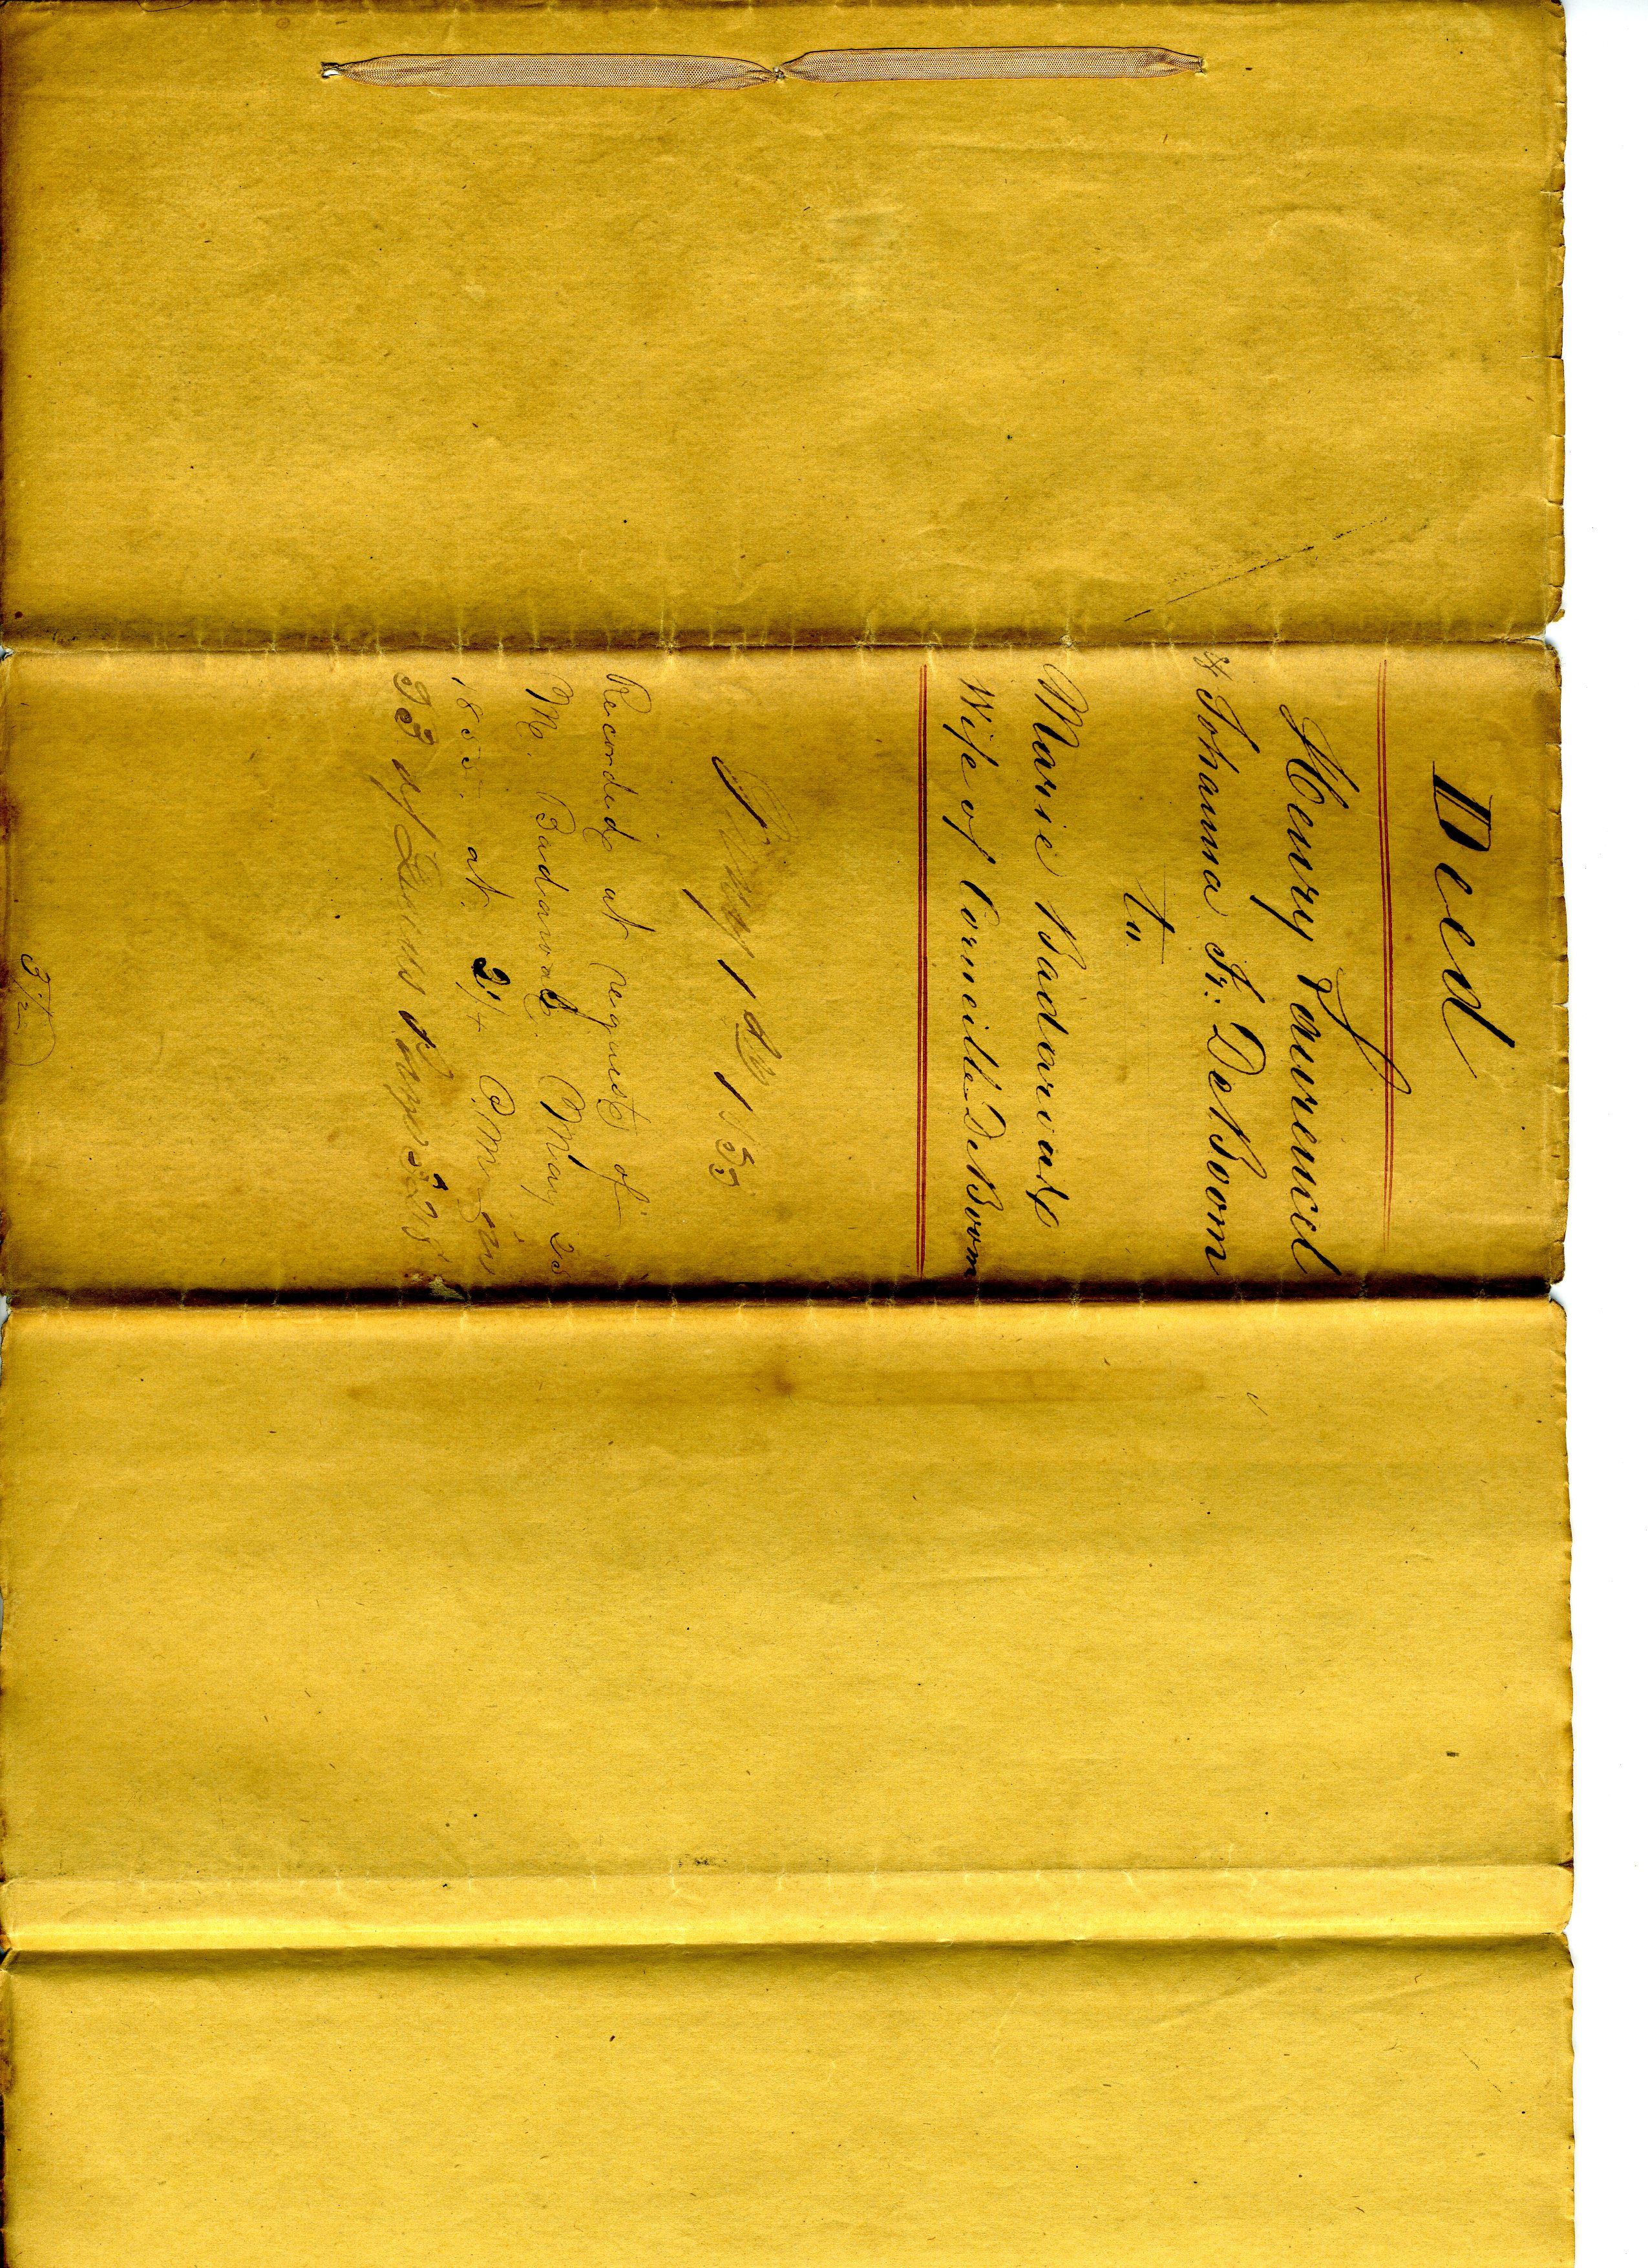 Deed
Henry Laurencel
& Johanna Fr: DeBoom
to
Marie Badarwat
Wife of Corneille DeBoom
May 1st 1855
Recorded at request of
M. Badarwat May 2d
1855. at 2 1/4 P.M. in
of Deeds Page 328